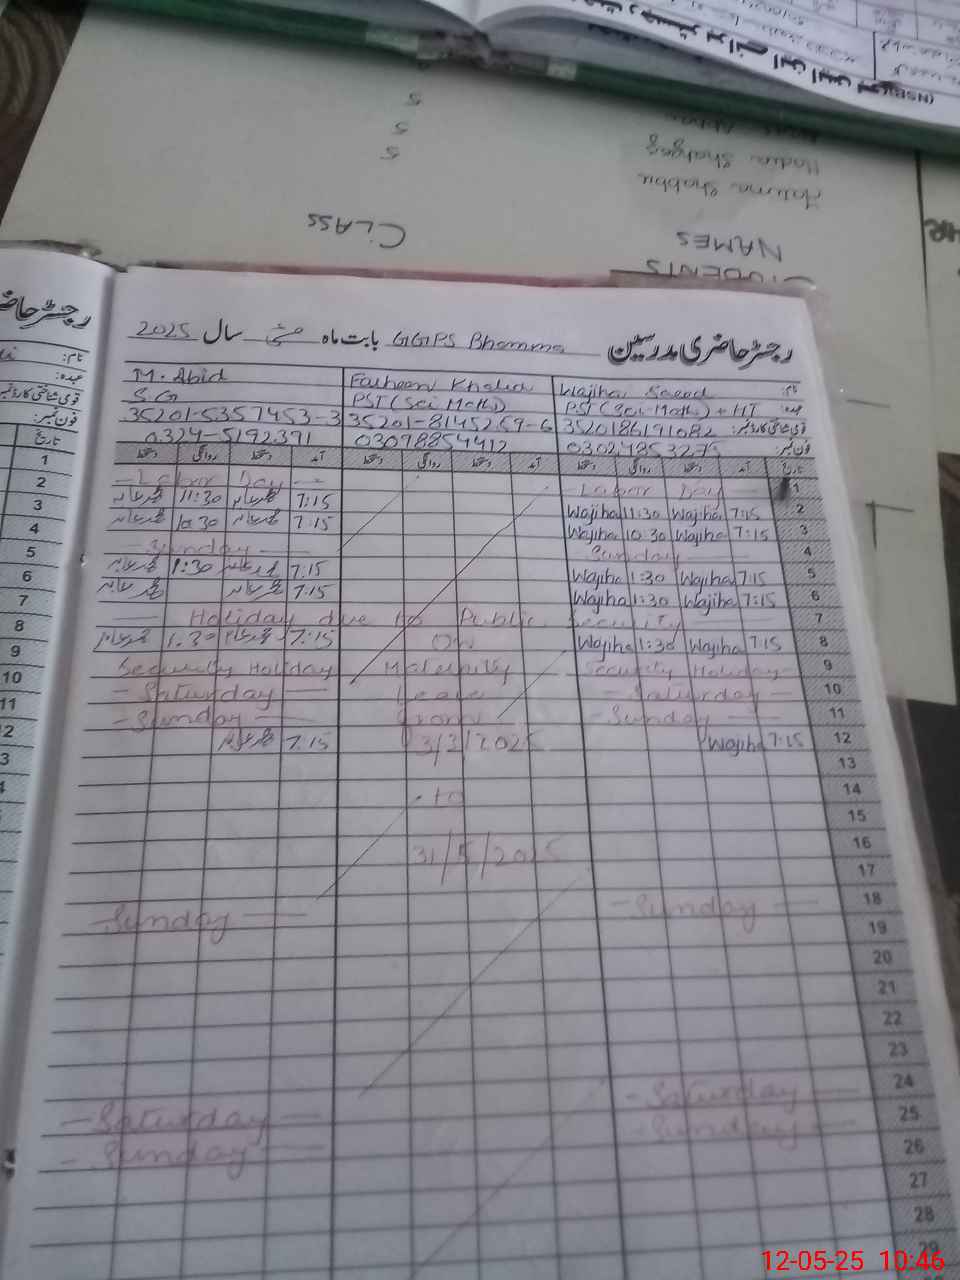 CLASS
NAMES
STUDENTS
5
5
5
رجسٹر حاضری مدرسین GGPS Bhamma بابت ماہ مئی سال 2025
نام: Wajiha Saeed Farheen Khalid M. Abid
عہدہ: PST (Sci-Math) + HT PST (Sci Math) S.G
قومی شناختی کارڈ نمبر: 3520186191082 35201-8145259-6 35201-5357453-3
فون نمبر: 03098854412 0324-5192391
تاریخ آمد دستخط روانگی دستخط آمد دستخط روانگی دستخط آمد دستخط روانگی دستخط
1 Labor Day Labour Day
2 7:15 Wajiha 11:30 Wajiha 7:15 محمد عابد 11:30 محمد عابد
3 7:15 Wajiha 10:30 Wajiha 7:15 محمد عابد 10:30 محمد عابد
4 Sunday Sunday
5 7:15 Wajiha 1:30 Wajiha 7:15 محمد عابد 1:30 محمد عابد
6 7:15 Wajiha 1:30 Wajiha 7:15 محمد عابد محمد عابد
7 Holiday due to Public Security
8 7:15 Wajiha 1:30 Wajiha On 7:15 محمد عابد 1:30 محمد عابد
9 Security Holiday Maternity Security Holiday
10 Saturday Leave Saturday
11 Sunday from Sunday
12 7:15 Wajiha 3/3/2025 7:15 محمد عابد
13
14 to
15
16 31/5/2025
17
18 Sunday Sunday
19
20
21
22
23
24 Saturday Saturday
25 Sunday Sunday
26
27
28
29
12-05-25 10:46